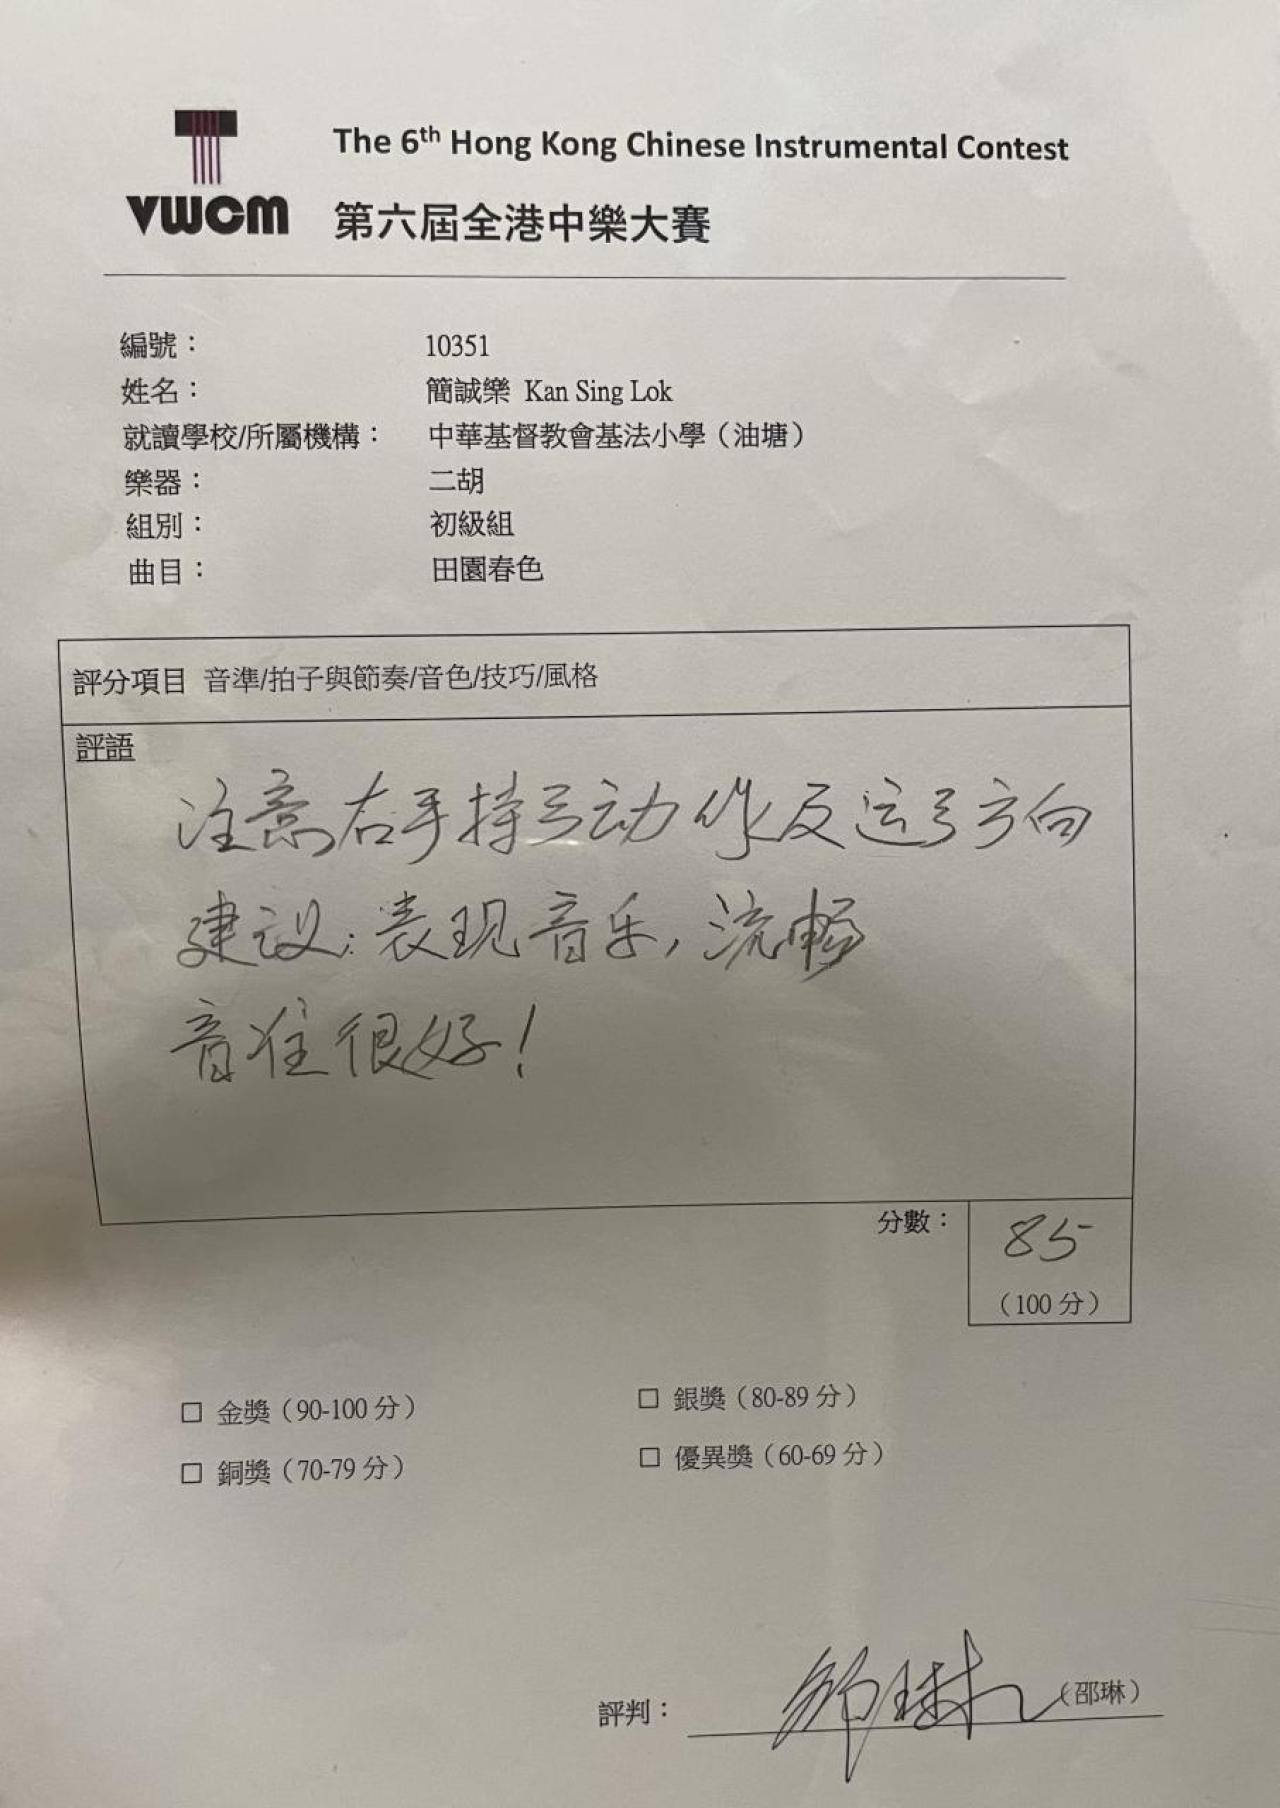 The 6th Hong Kong Chinese Instrumental Contest
VWCM
第六屆全港中樂大賽
編號： 10351
姓名： 簡誠樂 Kan Sing Lok
就讀學校/所屬機構： 中華基督教會基法小學（油塘）
樂器： 二胡
組別： 初級組
曲目： 田園春色
評分項目 音準/拍子與節奏/音色/技巧/風格
評語
注意右手持弓动作及运弓方向
建议:表现音乐,流畅
音准很好!
分數： 85
（100 分）
□ 金獎（90-100 分） □ 銀獎（80-89 分）
□ 銅獎（70-79 分） □ 優異獎（60-69 分）
評判： 邵琳（邵琳）